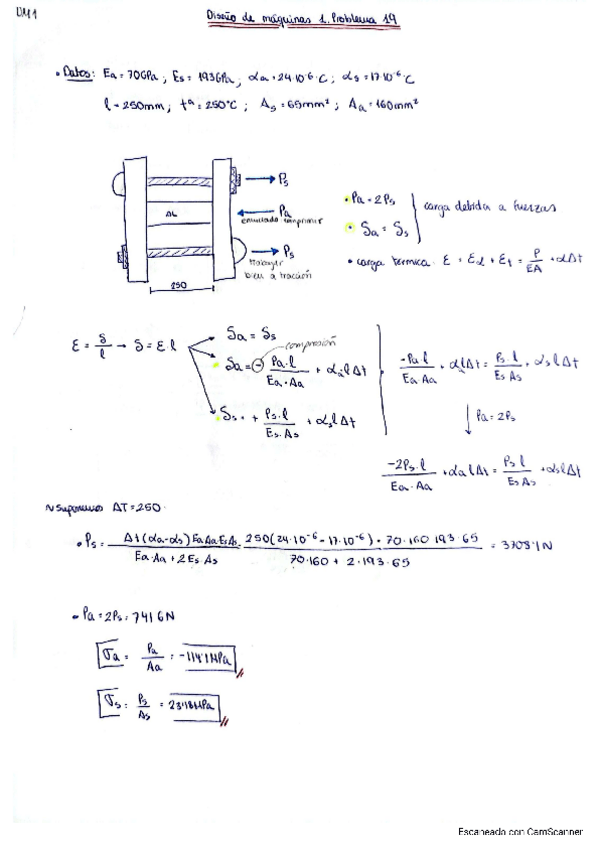 DM1
Diseño de máquinas 1. Problema 19
• Datos: Ea = 70GPa ; Es = 193GPa ; αa = 24·10⁻⁶·C ; αs = 17·10⁻⁶·C
l = 250mm ; tª = 250°C ; As = 65mm² ; Aa = 160mm²
Ps
AL
Pa
enunciado comprimir
Ps
trabajan
bien a tracción
250
• Pa = 2Ps
• δa = δs
carga debida a fuerzas
• carga termica. ε = εd + εt = P/EA + αΔt
ε = δ/l → δ = ε l
δa = δs
compresión
δa = - Pa·l/Ea·Aa + αa l Δt
δs = + Ps·l/Es·As + αs l Δt
-Pa·l/Ea Aa + αa l Δt = Ps·l/Es As + αs l Δt
Pa = 2Ps
-2Ps·l/Ea·Aa + αa l Δt = Ps l/Es As + αs l Δt
Suponemos ΔT = 250.
• Ps = Δt(αa-αs) Ea Aa Es As/Ea·Aa + 2 Es As = 250(24·10⁻⁶ - 17·10⁻⁶) · 70·160 193·65/70·160 + 2·193·65 = 3708'1N
• Pa = 2Ps = 7416N
σa = Pa/Aa = -
σs = Ps/As =
Escaneado con CamScanner